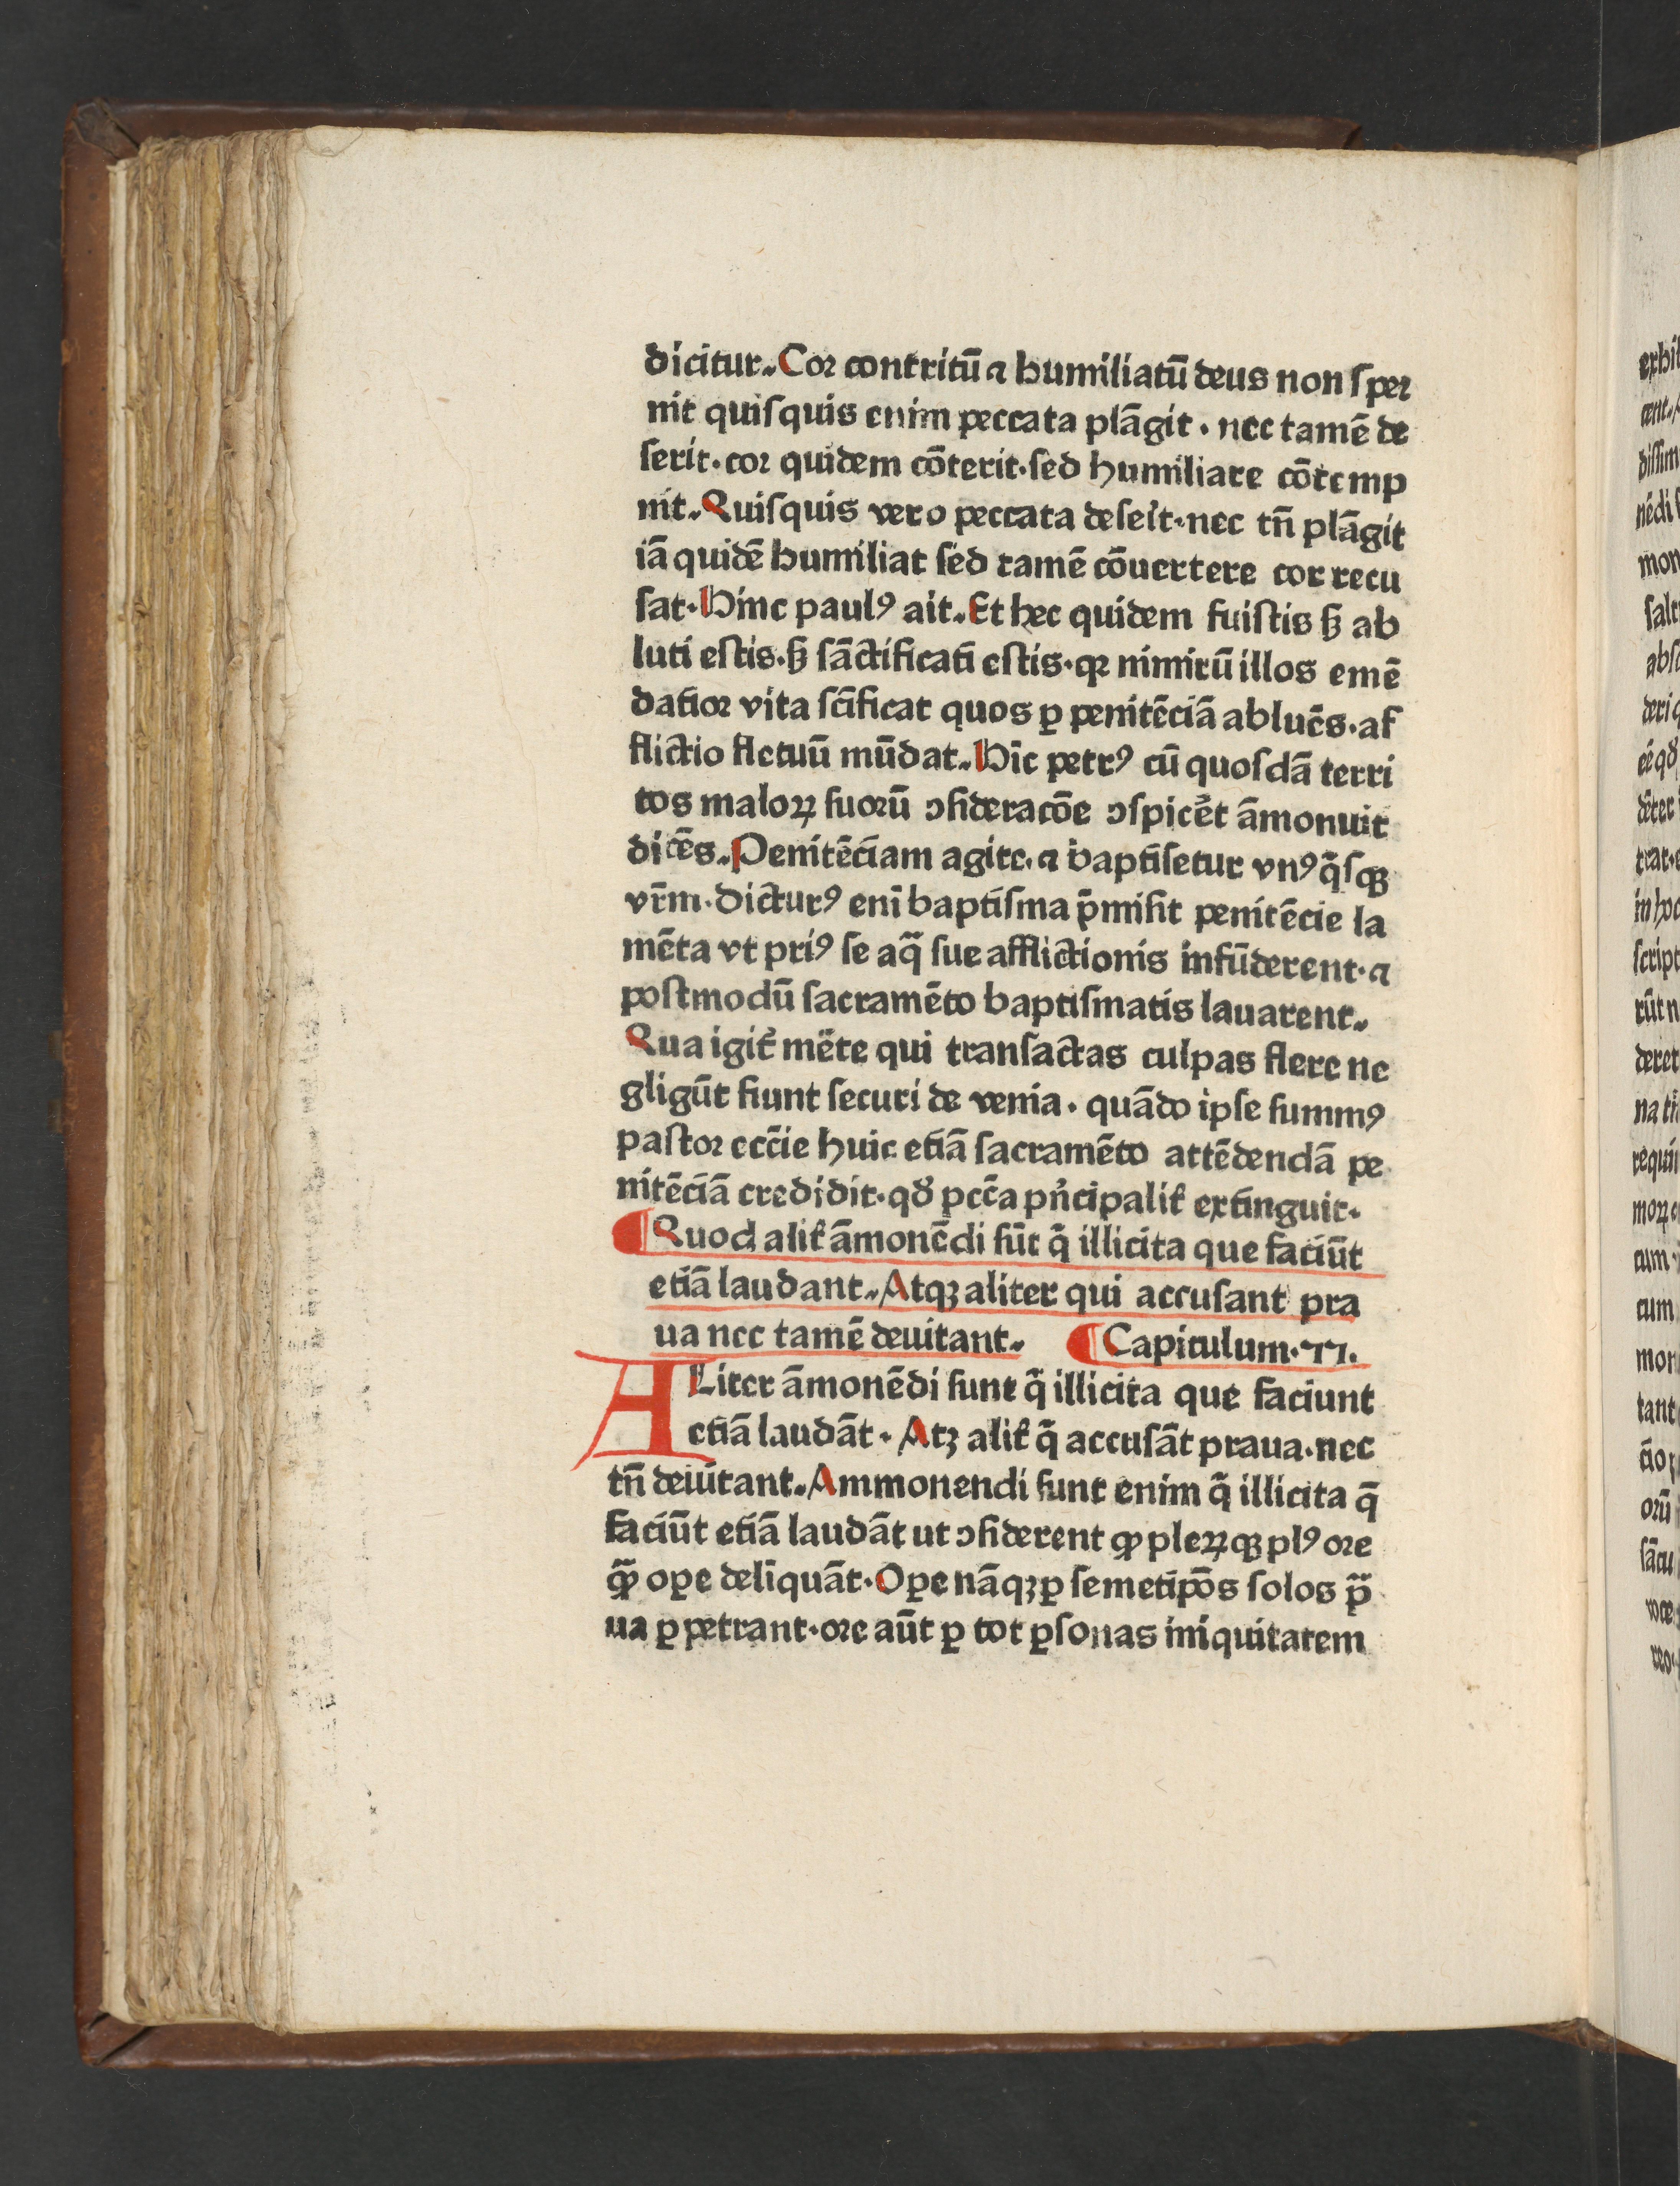 dicitur. Cor contritū ⁊ humiliatū deus non ſper
nit quiſquis enim peccata plāgit · nec tamē de
ſerit · cor quidem cōterit · ſed humiliare cōtemp
nit. Quiſquis vero peccata deſeīt · nec tñ plāgit
iā quidē humiliat ſed tamē cōuertere cor recu
ſat · Hinc paulꝰ ait. Et hec quidem fuiſtis ſꝫ ab
luti eſtis · ſꝫ ſāctificati eſtis · qꝛ nimirū illos emē
datior vita ſcīficat quos ꝑ penitēciā abluēs · af
flictio fletuū mūdat. Hīc petrꝰ cū quoſdā terri
tos maloꝝ ſuorū ↄſideracōe ↄſpicēt āmonuit
dicēs. Penitēciam agite · ⁊ baptiſetur vnꝰq̄ſqꝫ
vr̄m · Dicturꝰ enī baptiſma p̄miſit penitēcie la
mēta vt priꝰ ſe aq̄ ſue afflictionis infūderent · ⁊
poſtmodū ſacramēto baptiſmatis lauarent.
Qua igit̄ mēte qui tranſactas culpas flere ne
gligūt fiunt ſecuri de venia · quādo ipſe ſummꝰ
paſtor eccīe huic etiā ſacramēto attēdendā pe
nitēciā credidit · qđ pccā pn̄cipalit̄ extinguit ·
¶ Quod alit̄ āmonēdi ſūt q̄ illicita que faciūt
etiā laudant. Atqꝫ aliter qui accuſant pra
ua nec tamē deuitant. ¶ Capitulum · 77.
ALiter āmonēdi ſunt q̄ illicita que faciunt
etiā laudāt · Atꝫ alit̄ q̄ accuſāt praua · nec
tñ deiūtant. Ammonendi ſunt enim q̄ illicita q̄
faciūt etiā laudāt ut ↄſiderent ꝙ pleꝝqꝫ plꝰ ore
ꝙ̄ oꝑe delīquāt · Oꝑe nāqꝫ ꝑ ſemetip̄os ſolos p̄
ua ꝑpetrant · ore aūt ꝑ tot ꝑſonas iniquitatem